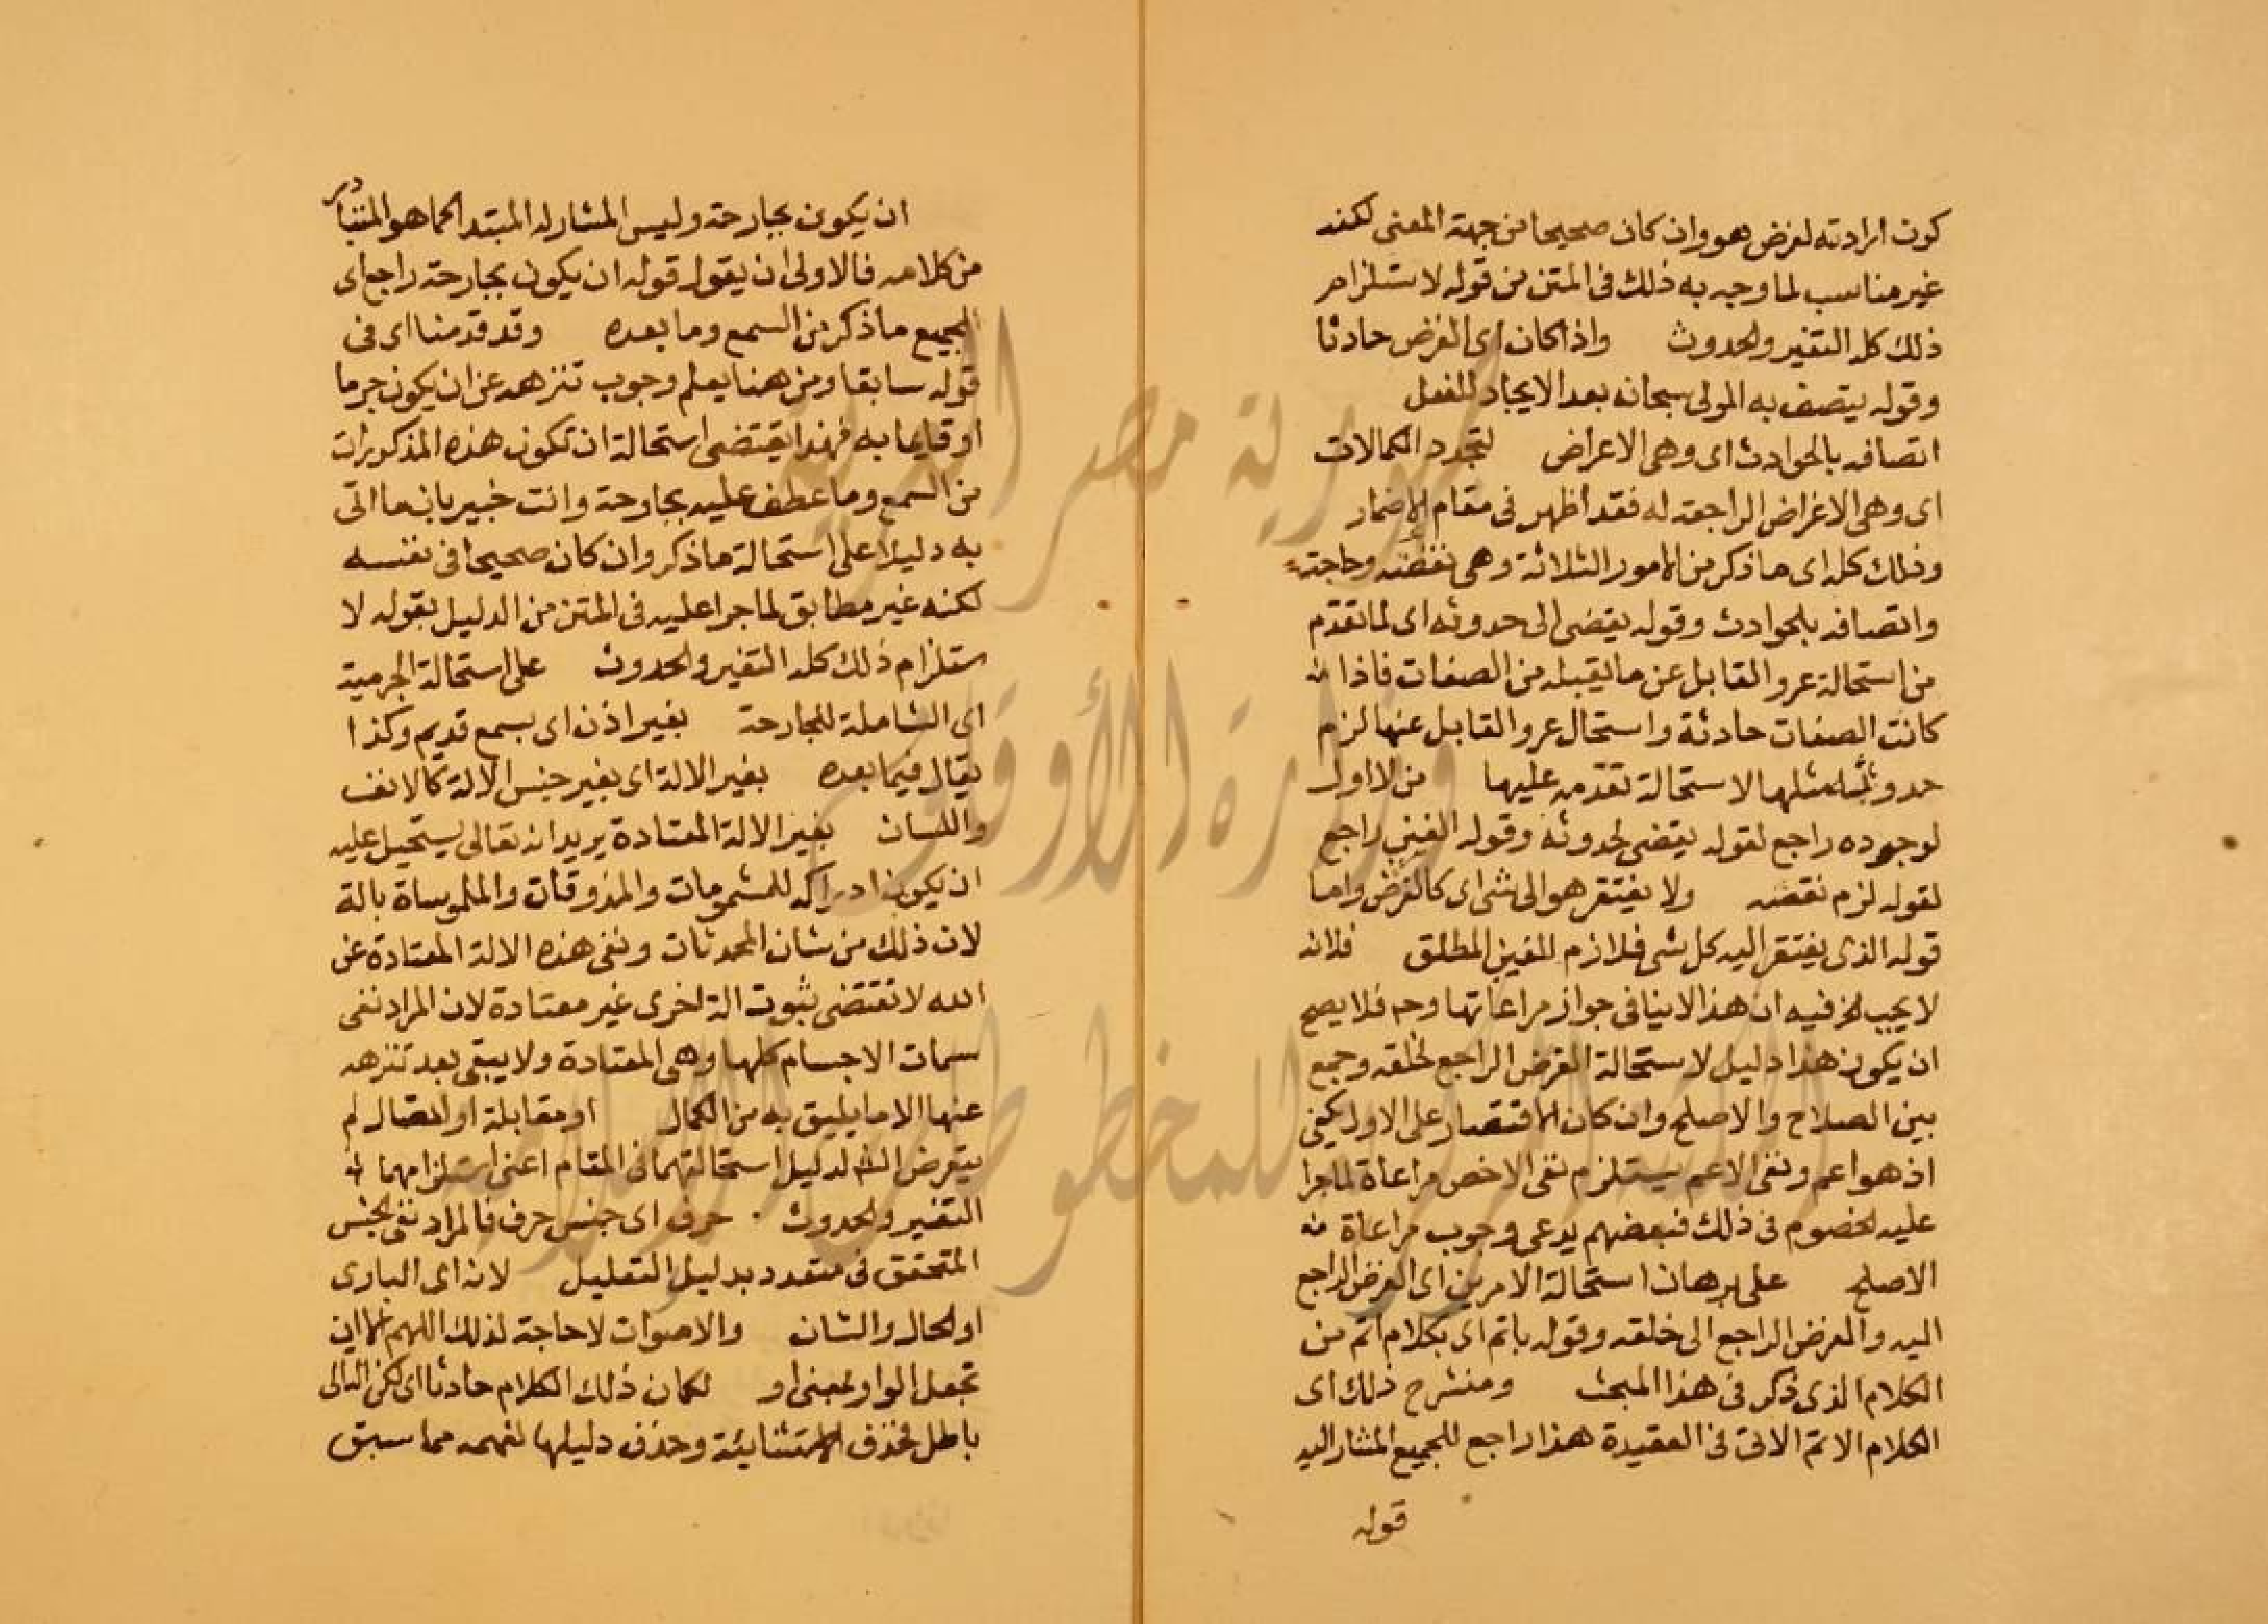 كون ارادته لغرض هو وان كان صحيحا من جهة المعنى لكنه
غير مناسب لما وجه به ذلك فى المتن من قوله لاستلزام
ذلك كله التغير والحدوث واذا كان اى الغرض حادثا
وقوله يتصف به المولى سبحانه بعد الايجاد للفعل
اتصافه بالحوادث اى وهى الاعراض لتجدد الكمالات
اى وهى الاغراض الراجعة له فقد اظهر فى مقام الاضمار
وذلك كله اى ما ذكر من الامور الثلاثة وهى نقصه وحاجته
واتصافه بالحوادث وقوله يقتضى الى حدوثه اى لما تقدم
من استحالة عرو القابل عن ما يقبله من الصفات فاذا
كانت الصفات حادثة واستحال عرو القابل عنها لزم
حدوثه مثلها لاستحالة تقدمه عليها من لا اول
لوجوده راجع لقوله يقتضى لحدوثه وقوله الغنى راجع
لقوله لزم نقصه ولا يفتقر هو الى شى اى كالغرض واما
قوله الذى يفتقر اليه كل شى فلازم للغنى المطلق فلانه
لا يجب الخ فيه ان هذا لا ينافى جواز مراعاتها وح فلا يصح
ان يكون هذا دليل لاستحالة الغرض الراجع لخلقه وجمع
بين الصلاح والاصلح وان كان الاقتصار على الاول يكفى
اذ هو اعم ونفى الاعم يستلزم نفى الاخص مراعاة لما جرا
عليه الخصوم فى ذلك فبعضهم يدعى وجوب مراعاة
الاصلح على برهان استحالة الامرين اى الغرض الراجع
اليه والغرض الراجع الى خلقه وقوله باتم اى بكلام اتم من
الكلام الذى ذكر فى هذا المبحث ومنشرح ذلك اى
الكلام الاتم الاتى فى العقيدة هذا راجع للجميع المشار اليه
قوله
ان يكون بجارحة وليس المشار له المبتدا كما هو المتبادر
من كلامه فالاولى ان يقول قوله ان يكون بجارحة راجع اى
لجميع ما ذكر من السمع وما بعده وقد قدمنا اى فى
قوله سابقا ومن هنا يعلم وجوب تنزهه عن ان يكون جرما
او قايما به فهذا يقتضى استحالة ان تكون هذه المذكورات
من السمع وما عطف عليه بجارحة وانت خبير بان ما اتى
به دليلا على استحالة ما ذكر وان كان صحيحا فى نفسه
لكنه غير مطابق لما جرا عليه فى المتن من الدليل بقوله لا
ستلزام ذلك كله التغير والحدوث على استحالة الجرمية
اى الشاملة للجارحة بغير اذن اى بسمع قديم وكذا
يقال فيما بعده بغير الالة اى بغير جنس الالة كالانف
واللسان بغير الالة المعتادة يريد انه تعالى يستحيل عليه
ان يكون ادراكه للمشمومات والمذوقات والملموساة بالة
لان ذلك من شان المحدثات ونفى هذه الالة المعتادة عن
الله لا تقتضى ثبوت الة اخرى غير معتادة لان المراد نفى
سمات الاجسام كلها وهى المعتادة ولا يبقى بعد تنزهه
عنها الا ما يليق به من الكمال او مقابلة او اتصال لم
يتعرض الش لدليل استحالتهما فى المقام اعنى استلزامهما
التغير والحدوث . حرف اى جنس حرف فالمراد نفى الجنس
المتحقق فى متعدد بدليل التعليل لانه اى البارى
او الحال والشان والاصوات لا حاجة لذلك اللهم الا ان
تجعل الواو بمعنى او لكان ذلك الكلام حادثا اى لكن التالى
باطل فحذف الاستثنايئة وحذف دليلها لفهمه مما سبق
جمهورية مصر العربية
وزارة الأوقاف